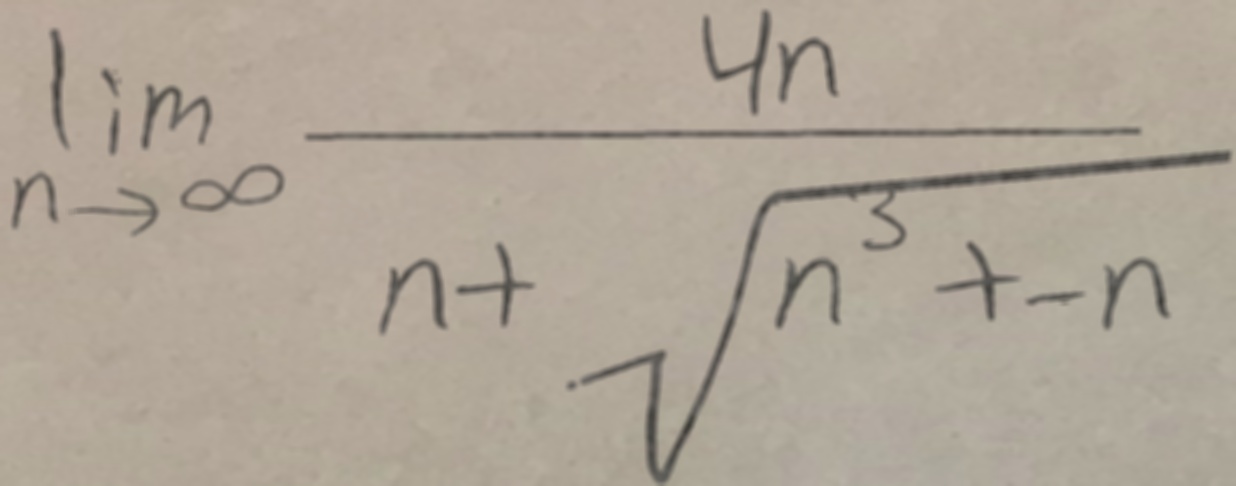 lim n→∞ 4n
n+ √n³ + -n